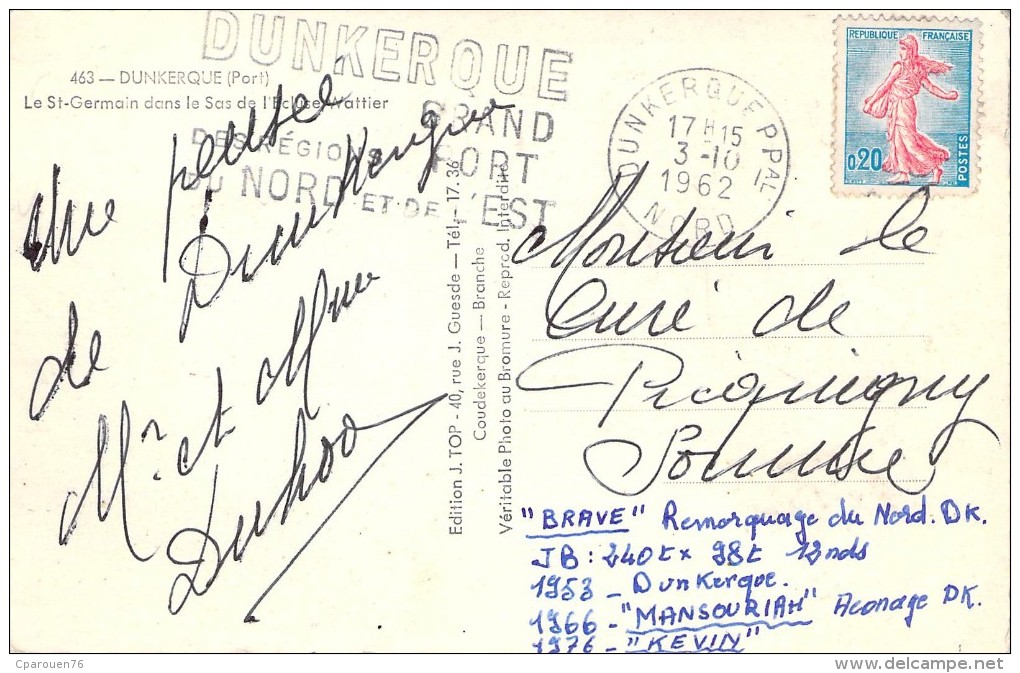 463 — DUNKERQUE (Port)
Le St-Germain dans le Sas de l'Ecluse Wattier
DUNKERQUE
GRAND
DES RÉGIONS PORT
DU NORD ET DE L'EST
DUNKERQUE PPAL
17 H 15
3 -10
1962
NORD
RÉPUBLIQUE FRANÇAISE
0,20
POSTES
Une pensée
de Dunkerque
Mr et Mme
Edition J. TOP - 40, rue J. Guesde — Tél. — 17.36
Coudekerque — Branche
Véritable Photo au Bromure - Reprod. Interdite
Monsieur le
Curé de
Picquigny
Somme
"BRAVE" Remorquage du Nord. DK.
JB: 240t x 98t 12nds
1953 - Dunkerque.
1966 - "MANSOURIAH" Aconage DK.
1976 - "KEVIN"
Cparouen76
www.delcampe.net